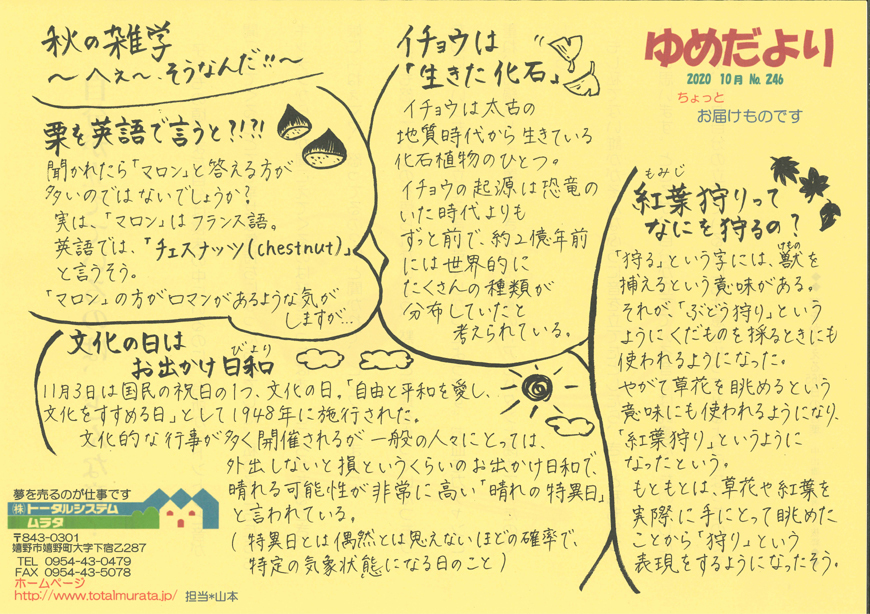 ゆめだより
2020 10月 No.246
ちょっと
お届けものです
秋の雑学
～へぇ～、そうなんだ!!～
栗を英語で言うと?!?!
聞かれたら「マロン」と答える方が
多いのではないでしょうか？
実は、「マロン」はフランス語。
英語では、「チェスナッツ(chestnut)」
と言うそう。
「マロン」の方がロマンがあるような気が
しますが…
イチョウは
「生きた化石」
イチョウは太古の
地質時代から生きている
化石植物のひとつ。
イチョウの起源は恐竜の
いた時代よりも
ずっと前で、約2億年前
には世界的に
たくさんの種類が
分布していたと
考えられている。
もみじ
紅葉狩りって
なにを狩るの？
けもの
「狩る」という字には、獣を
捕えるという意味がある。
それが、「ぶどう狩り」という
ようにくだものを採るときにも
使われるようになった。
やがて草花を眺めるという
意味にも使われるようになり、
「紅葉狩り」というように
なったという。
もともとは、草花や紅葉を
実際に手にとって眺めた
ことから「狩り」という
表現をするようになったそう。
文化の日は
びより
お出かけ日和
11月3日は国民の祝日の1つ、文化の日。「自由と平和を愛し、
文化をすすめる日」として1948年に施行された。
文化的な行事が多く開催されるが一般の人々にとっては、
外出しないと損というくらいのお出かけ日和で、
晴れる可能性が非常に高い「晴れの特異日」
と言われている。
(特異日とは偶然とは思えないほどの確率で、
特定の気象状態になる日のこと)
夢を売るのが仕事です
㈱トータルシステム
ムラタ
〒843-0301
嬉野市嬉野町大字下宿乙287
TEL 0954-43-0479
FAX 0954-43-5078
ホームページ
http://www.totalmurata.jp/ 担当*山本